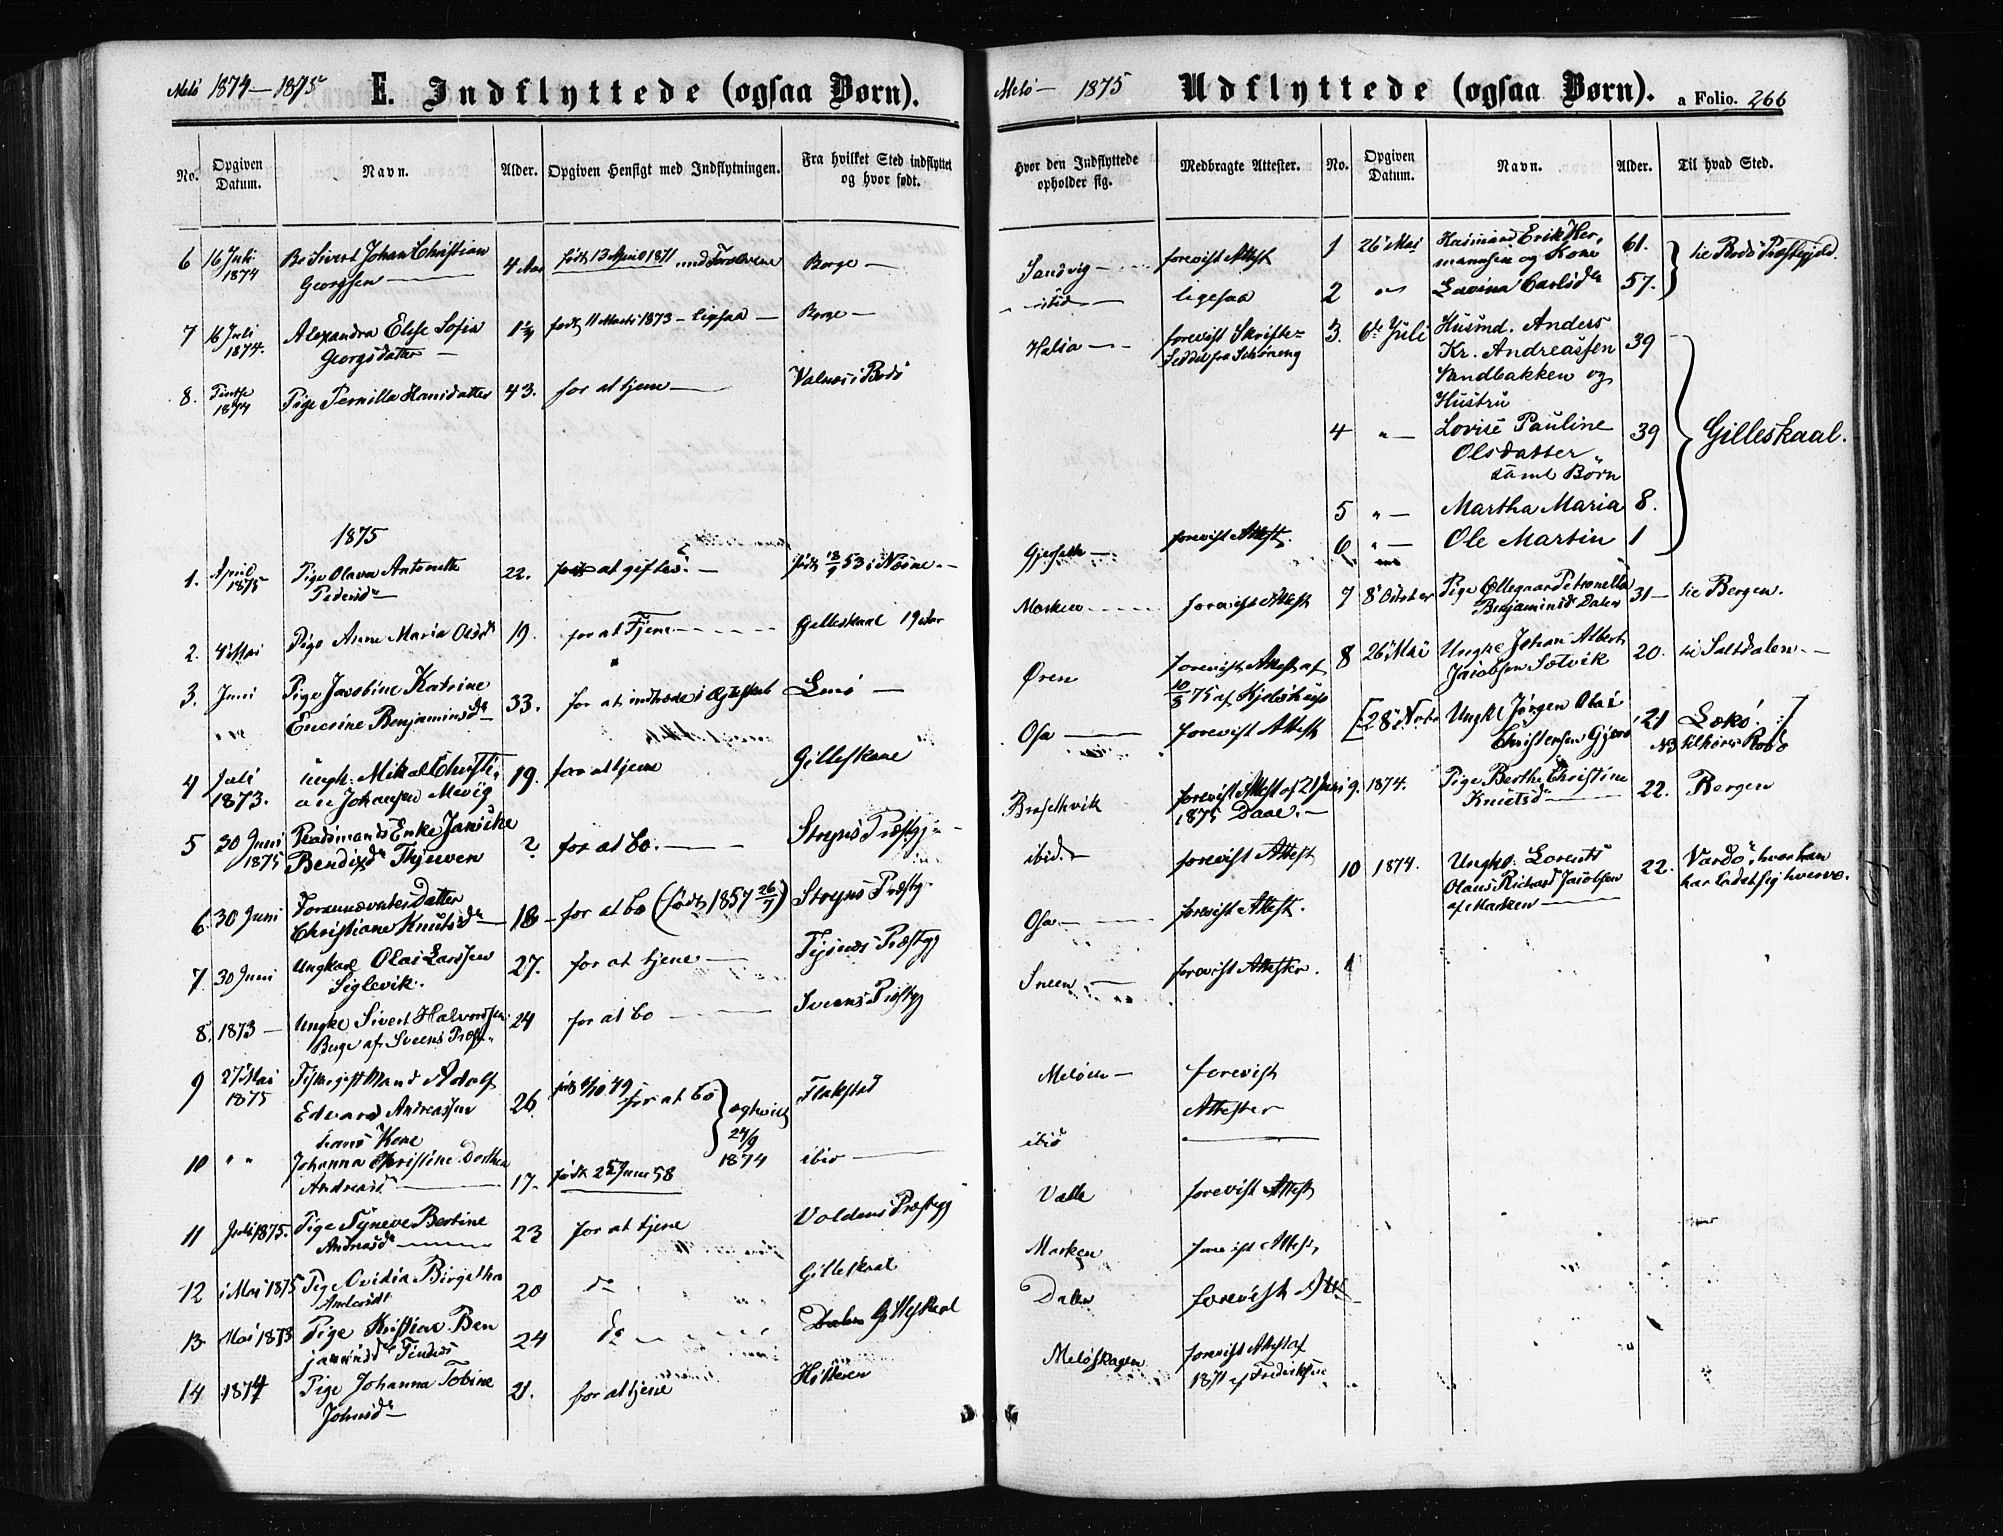 Melø 1874–1875 E. Indflyttede (ogsaa Børn).
No. Opgiven Datum. Navn. Alder. Opgiven Hensigt med Indflytningen. Fra hvilket Sted indflyttet og hvor født.
6 16 Juli 1874 Sivert Johan Christian Georgsen 4 Aar født 13 April 1871 med Forældrene Borge –
7 16 Juli 1874. Alexandra Elise Sofia Georgsdatter – 1¼ født 11 Marti 1873 – ligsaa – Borge –
8. 1874 Pige Pernilla Hansdatter 43. for at tjene – Valnæs i Bodø
1875
1. April 1875 Pige Olava Antonette Pedersd. – 22. at giftes. – født 18/9 53 i Næsne. –
2. 4 Mai Pige Anne Maria Olsd. 19. for at Tjene – Gilleskaal 19 Aar
3. Juni Pige Jacobine Katrine Enerine Benjaminsd. – 33. for at indtræde i Ægteskab Lurø –
4 Juli 1873. Ungk. Mikal Christian Johansen Mevig 19. for at tjene Gilleskaal
5 30 Juni 1875 Enke Janicke Bendixd. Thjeven ? for at bo. – Stryns Præstgj. –
6. 30 Juni Forannævntes Datter Christiane Knutsd. – 18 – for at bo (født 1857 26/7) Stryns Præstg.
7. 30 Juni Ungkarl Olai Larssen Siglevik. 27. for at tjene – Tysnæs Præstgj
8. 1873 – Ungk. Sivert Halvorssen Berge af Sveens Præstg. 24 for at bo – Sveens Præstgj
9 27 Mai 1875 Mand Adolf Edvard Andreassen 26. født 8/10 49 for at bo Flakstad
hans Kone
ægteviet 24/9 1874
10 " " Johanna Christine Dorthea Andreasd. – 17. født 25 Juni 58 ibid –
11 Juli 1875. Pige Synneve Bertine Andreasd. – 23 for at tjene Voldens Præstegj
12 i Mai 1875 Pige Ovidia Birgitha Andersdt 20 do Gilleskaal
13. Mai 1873 Pige Kristine Benjaminsd. 24 do Dalen Gilleskaal
14 1874 Pige Johanna Tobine Johnsd. – 21. for at tjene Hitteren
Melø – 1875 Udflyttede (ogsaa Børn). a Folio. 266
Hvor den Indflyttede opholder sig. Medbragte Attester. No. Opgiven Datum. Navn. Alder. Til hvad Sted.
Sandvig – forevist Attest 1 26 Mai Husmand Erik Hermannsen og Kone 61. til Bodø Præstegjeld.
– ibid – ligesaa 2 " – Lavina Carlsd. 57.
Halsa – forevist Skrifte-Seddel fra Schøning 3. 6te Juli Husmd. Anders Kr. Andreassen Sandbakken og Hustru 39
4 " – Lovise Pauline Olsdatter samt Børn 39 Gilleskaal.
5 " – Martha Maria 8.
forevist Attest. 6 " – Ole Martin 1
Marken – forevist Attest 7 8 October Pige Ollegaard Petronella Benjaminsd. Dalen 31 – til Bergen.
Øren forevist Attest af 10/5 75 af Kjelstrup 8 26 Mai Ungk. Johan Albert Jacobsen Sætvik 20. til Saltdalen –
Osa – forevist Attest [28 Novbr Ungkl Jørgen Olai Christensen 21 Lekø.] NB tilhører Rødø
Brasethvik forevist Attest af 21 Juni 1875 Daae. – 9. 1874. Pige Berthe Christine Knutsd. – 22. Bergen
ibid. – forevist Attest 10 1874. Ungk. Lorents Olaus Richard Jacobsen af Marken – 22. Vardø, hvor han har ladet sig hverve.
Osa – forevist Attest.
Sneen – forevist Attester. 1
Meløen – forevist Attester
ibid –
Valle forevist Attest
Marken forevist Attest,
Dalen forevist Att–
Meløskagen forevist Attest af 1871 af Frederiksen